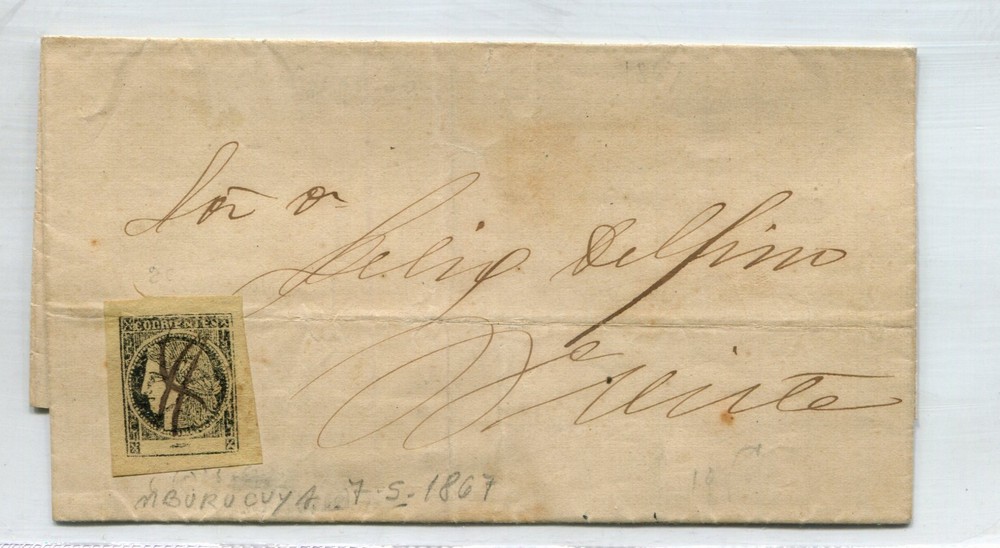 Sōr Dn
Felix Delfino
CORRIENTES
MBURUCUYA. 7-S-1867